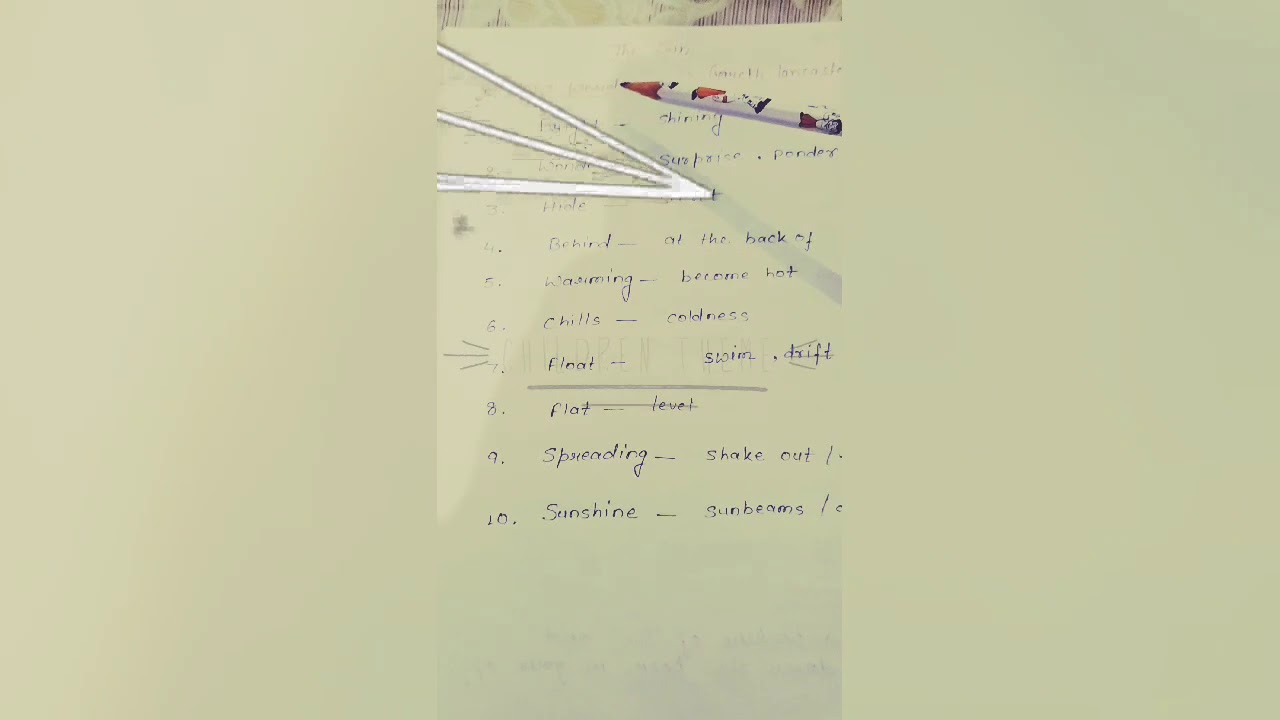 The Sun
Gareth Lancaste
Bright — shining
2. Wonder surprise . ponder
3. Hide —
4. Behind — at the back of
5. Warming — become hot
6. Chills — coldness
CHILDREN THEME
7. Float — swim . drift
8. Flat — level
9. Spreading — shake out /
10. Sunshine — sunbeams /